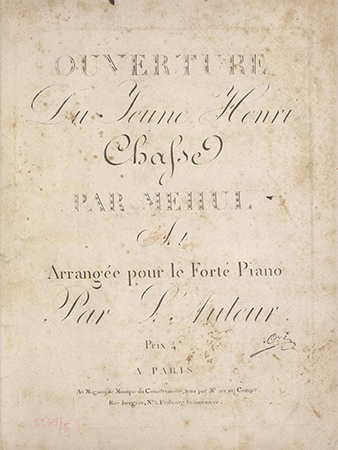 OUVERTURE
Du Jeune Henri
Chasse
PAR MEHUL
Arrangée pour le Forté Piano
Par L'Auteur
Prix 4
A PARIS
Au Magasin de Musique du Conservatoire, tenu par
Rue Bergere, Fbourg